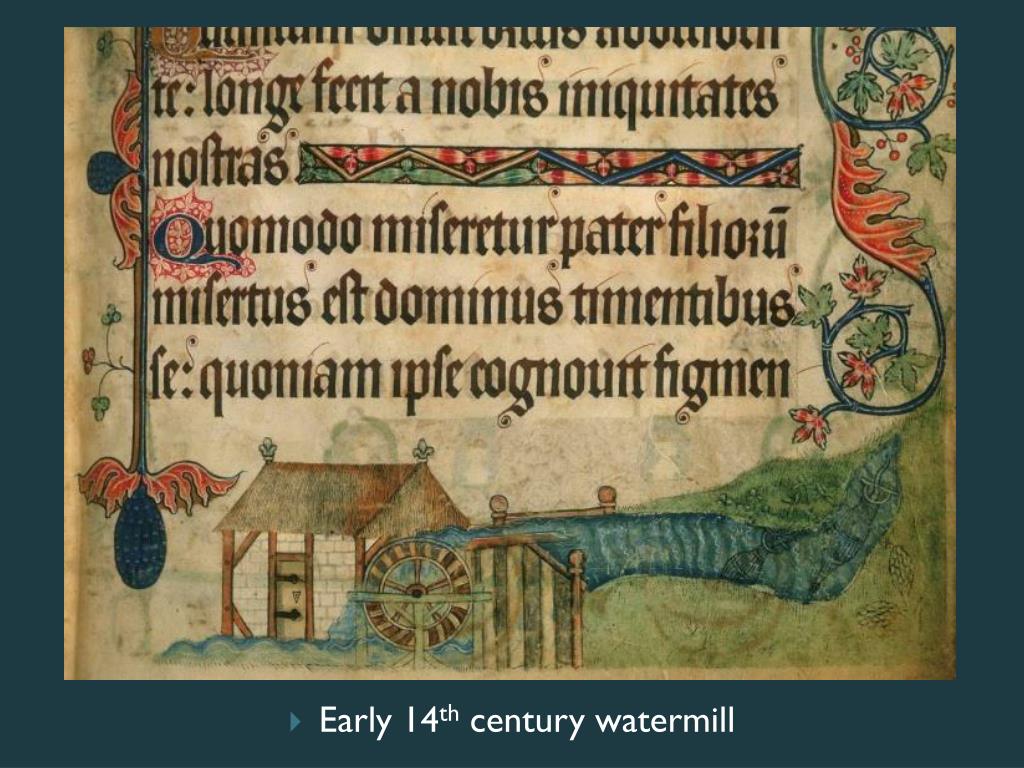 te: longe fecit a nobis iniquitates
noſtras
Quomodo miſeretur pater filioꝛū
miſertus eſt dominus timentibus
ſe: quoniam ipſe cognouit figmen
Early 14th century watermill